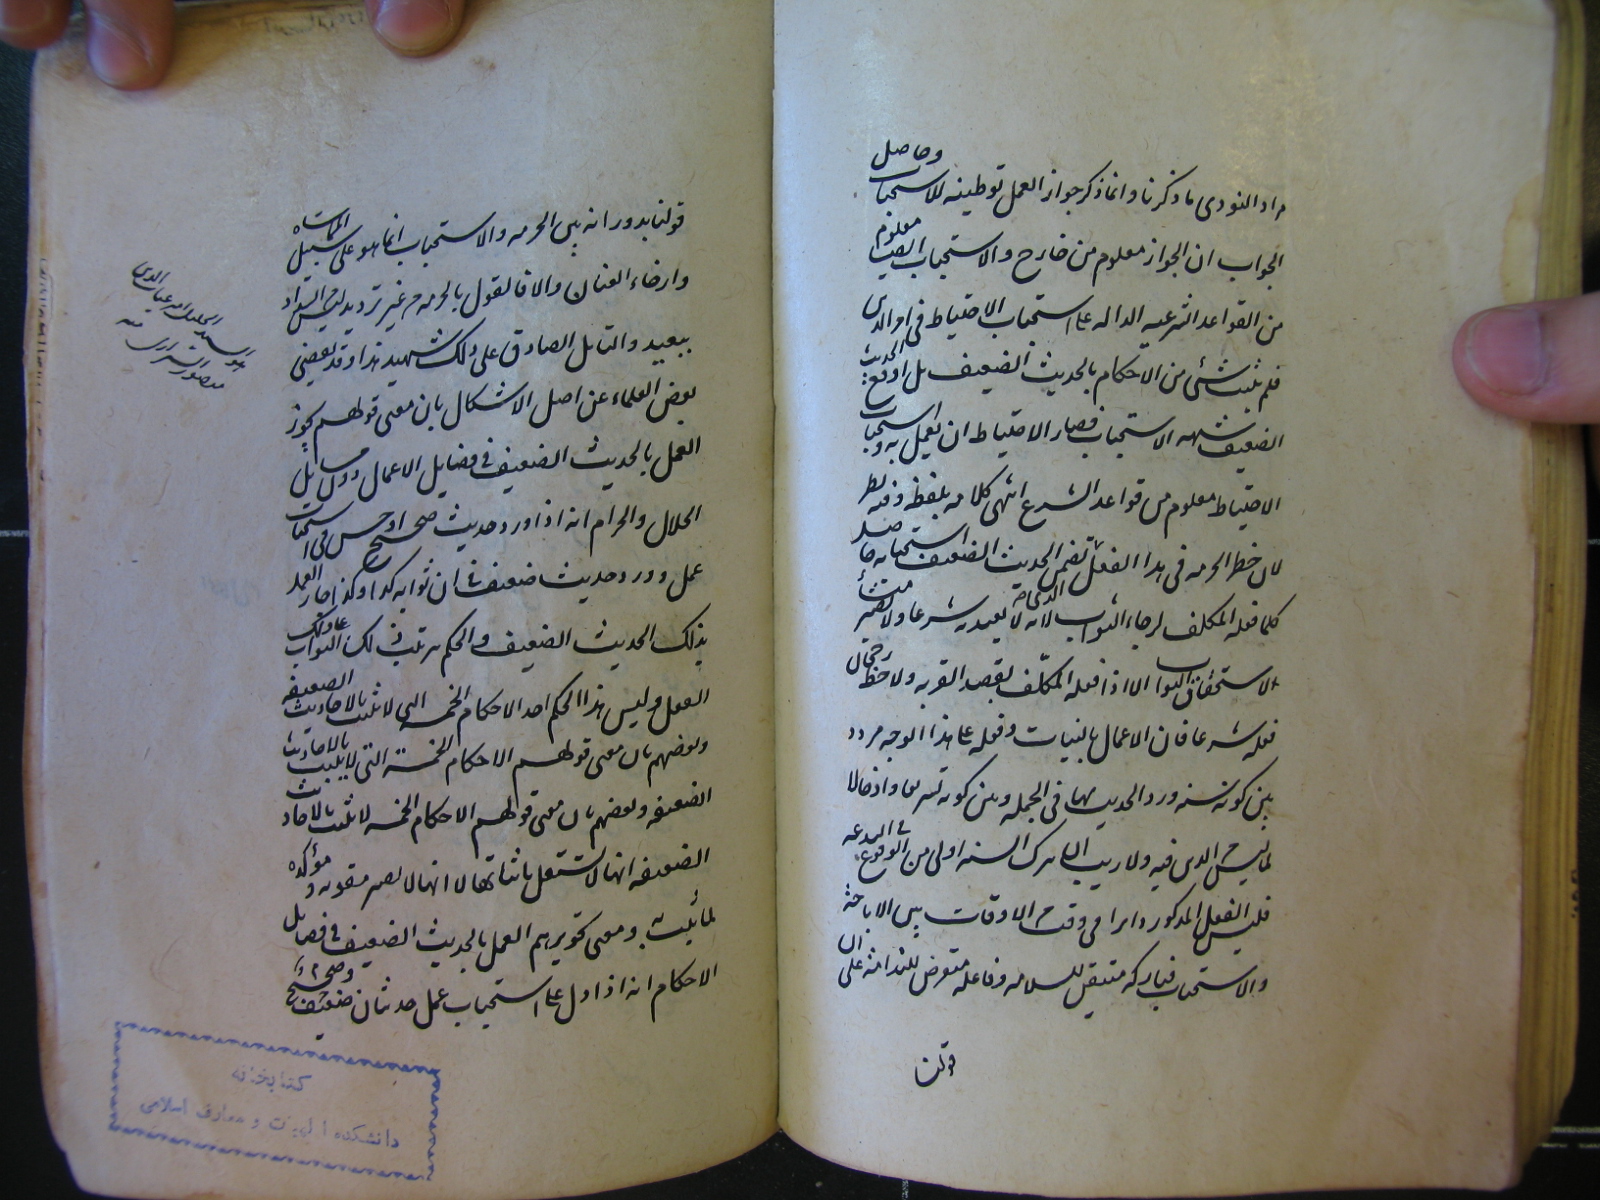 مراد النووى ما ذكرنا وانما ذكر جواز العمل توطئة للاستحباب وحاصل
الجواب ان الجواز معلوم من خارج والاستحباب ايضا معلوم
من القواعد الشرعيه الداله على استحباب الاحتياط فى امر الدين
فلم يثبت شئ من الاحكام بالحديث الضعيف بل اوقع الحديث
الضعيف شبهه الاستحباب فصار الاحتياط ان يعمل به واستحباب
الاحتياط معلوم من قواعد الشرع انتهى كلامه بلفظه وفيه نظر
لان خطر الحرمه فى هذا الفعل الذى تضمن الحديث الضعيف استحبابه حاصل
كلما فعله المكلف لرجاء الثواب لانه لا يعتد به شرعا ولا يصير منشأ
لاستحقاق الثواب الا اذا فعله المكلّف بقصد القربه ولاحظ رجحان
فعله شرعا فان الاعمال بالنيات وفعله على هذا الوجه مردد
بين كونه سنه ورد الحديث بها فى الجمله وبين كونه تشريعا وادخالا
لما ليس من الدين فيه ولا ريب ان ترك السنه اولى من الوقوع فى البدعه
فليس الفعل المذكور دايرا فى وقت من الاوقات بين الاباحة
والاستحباب فتاركه متيقن للسلامه وفاعله متعرض للندامة على ان
قولنا
قولنا بدورانه بين الحرمه والاستحباب انما هو على سبيل المماشاه
وارخاء العنان والا فالقول بالحرمه من غير ترديد ليس عن السداد
ببعيد والتأمل الصادق على ذلك شهيد هذا وقد تفصى
بعض العلماء عن اصل الاشكال بان معنى قولهم يجوز
العمل بالحديث الضعيف فى فضايل الاعمال دون مسايل
الحلال والحرام انه اذا ورد حديث صحيح او حسن فى استحباب
عمل وورد حديث ضعيف فى ان ثوابه كذا وكذا جاز العمل
بذلك الحديث الضعيف والحكم بترتب ذلك الثواب على ذلك
الفعل وليس هذا الحكم احد الاحكام الخمسه التى لا تثبت بالاحاديث الضعيفه
وبعضهم بان معنى قولهم الاحكام الخمسة التى لا يثبت بالاحاديث
الضعيفه وبعضهم بان معنى قولهم الاحكام الخمسه لا تثبت بالاحاديث
الضعيفه انها لا تستقل باثباتها لا انها لا تصير مقويه ومؤكده
لما تثبت به ومعنى تجويزهم العمل بالحديث الضعيف فى فضايل
الاحكام انه اذا دل على استحباب عمل حديثان ضعيف وصحيح
السيد الجليل امير غياث الدين
منصور الشيرازى منه
كتابخانه
دانشكده الهيات و معارف اسلامى